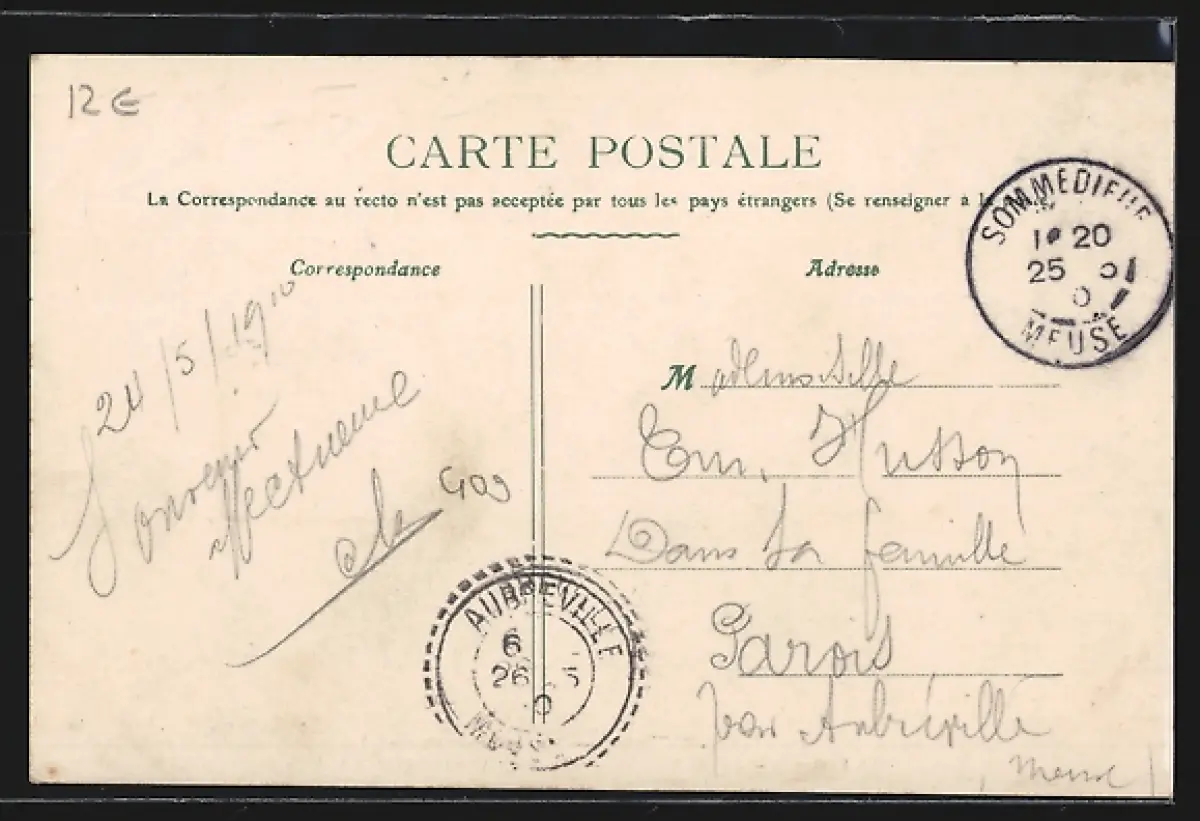 12 €
CARTE POSTALE
La Correspondance au recto n'est pas acceptée par tous les pays étrangers (Se renseigner à la
Correspondance
Adresse
24/5/1910
Souvenir
affectueux
409
Mademoiselle
Em. Husson
Dans sa famille
Parois
par Aubréville
Meuse
SOMMEDIEUE
1* 20
25
MEUSE
AUBREVILLE
6
26 5
0
MEUSE